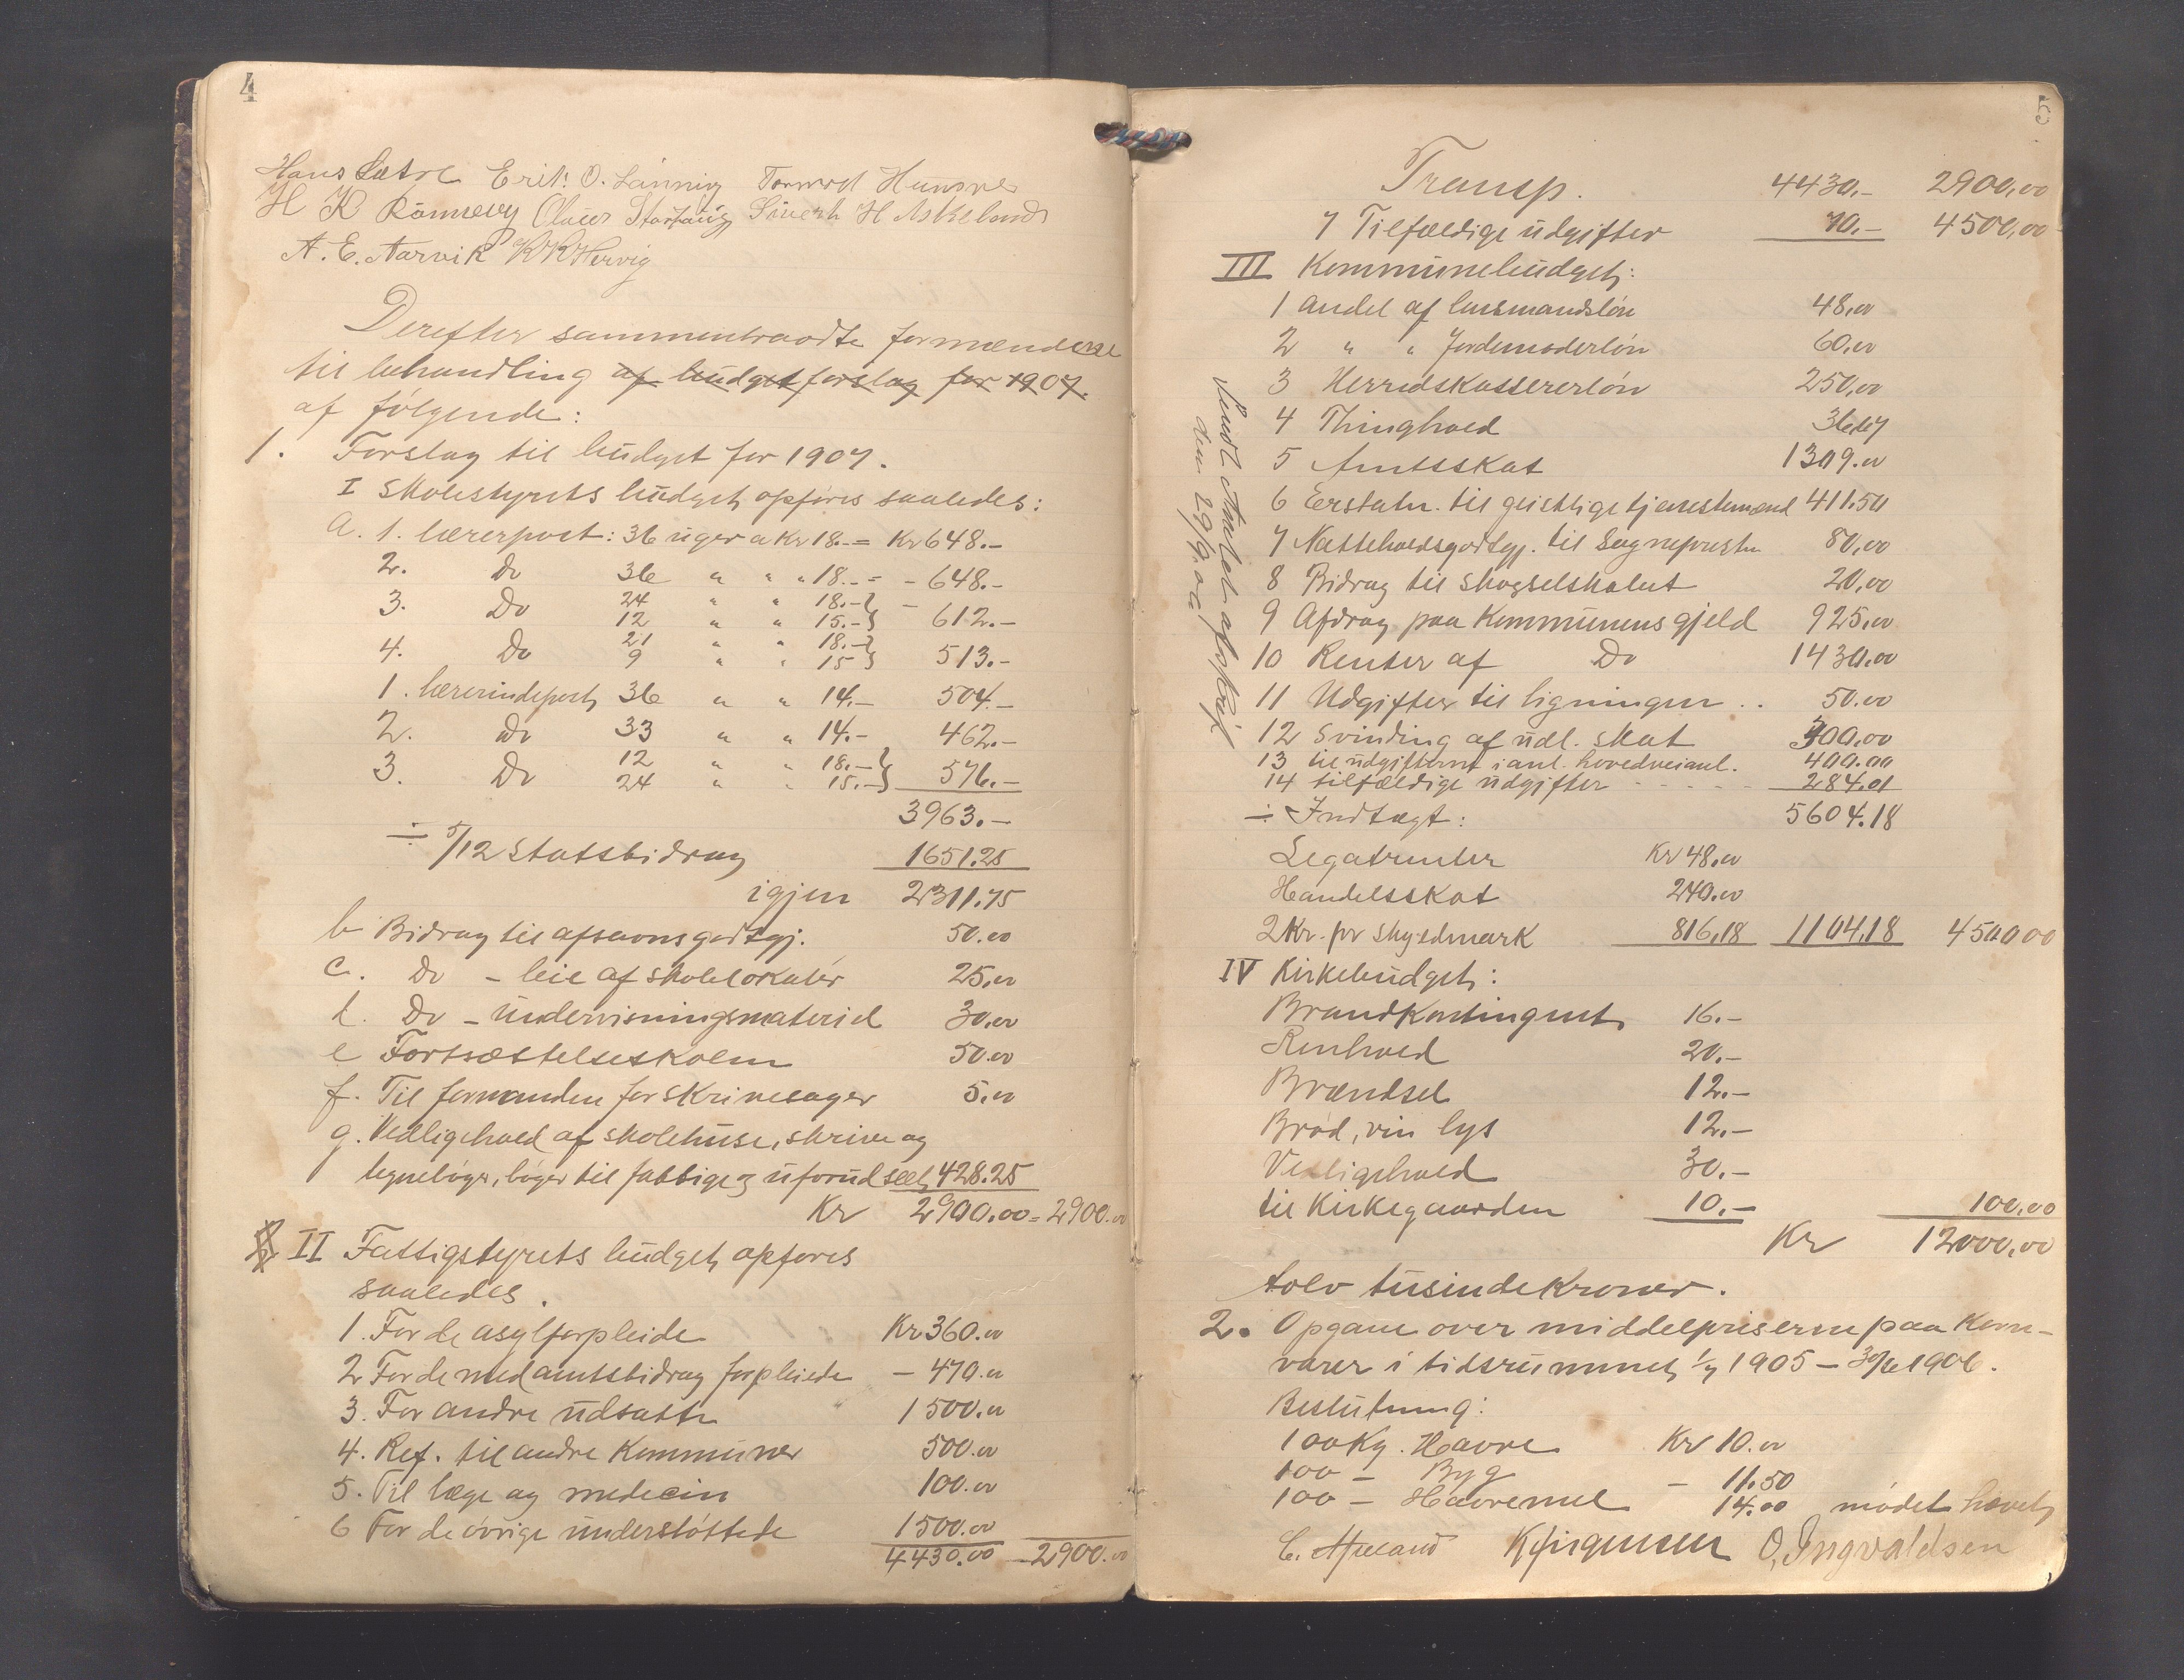 4
Hans Sætre Erik O. Lønning Tormod Hunsnes
H K Rönnevig Olaus Storhaug Sivert H Askeland
A. E. Aarvik KKHervig
Derefter sammentraadte formændene
til behandling af budgetforslag for 1907.
af følgende:
1. Forslag til budget for 1907.
I Skolestyrets budget opføres saaledes:
a. 1. lærerpost: 36 uger a Kr 18.- = Kr 648.-
2. Do 36 " " " 18.- = - 648.-
3. Do 24 " " 18.- } -
12 " " 15.- } 612.-
4. Do 21 " " 18.- }
9 " " 15 } 513.-
1. lærerindepost 36 " " 14.- 504.-
2. Do 33 " " 14.- 462.-
3. Do 12 " " 18.- }
24 " " 15.- } 576.-
3963.-
÷ 5/12 Statsbidrag 1651.25
igjen 2311.75
b Bidrag til afsavnsgodtgj. 50.00
c. Do - leie af skolelokaler 25,00
d. Do - undervisningsmateriel 30,00
e Fortsættelseskolen 50.00
f. Til formanden for skrivesager 5,00
g. Vedligehold af skolehuse, skrive og
regnebøger, bøger til fattige og uforudseet 428.25
Kr 2900.00 = 2900.00
2 II Fattigstyrets budget opføres
saaledes.
1. For de asylforpleiede Kr 360.00
2 For de med amtsbidrag forpleiede - 470.00
3. For andre udsatte 1500.00
4. Ref. til andre Kommuner 500.00
5. Til læge og medecin 100.00
6 For de øvrige understøttede 1500.00
4430.00 - 2900.00
5
Transp. 4430.- 2900,00
7 Tilfældige udgifter 70.- 4500,00
III Kommunebudget:
1 Andel af lensmandsløn 48,00
2 " " Jordemoderløn 60,00
3 Herredskassererløn 250,00
4 Thinghold 36,67
5 Amtsskat 1309.00
6 Erstatn. til geistlige tjenestemænd 411.50
7 Nattholdsgodtgj. til Sognepresten 80,00
8 Bidrag til Skogselskabet 20,00
9 Afdrag paa Kommunens gjeld 925,00
10 Renter af Do 1430.00
11 Udgifter til ligningen .. 50.00
12 Svinding af udl. skat 300,00
13 til udgifterne i anl. hovedveianl. 400.00
14 tilfældige udgifter - - - - - 284.01
÷ Indtægt: 5604.18
Legatrenter Kr 48,00
Handelsskat 240.00
2 Kr. pr skyldmark 816,18 1104,18 4500 00
Sendt Amtet afskrift
den 29/9.06
IV Kirkebudget:
Brandkontingent 16.-
Renhold 20.-
Brændsel 12.-
Brød, vin lys 12.-
Vedligehold 30.-
til Kirkegaarden 10.- 100,00
Kr 12000,00
tolv tusinde Kroner.
2. Opgave over middelpriserne paa Korn-
varer i tidsrummet 1/7 1905 - 30/6 1906.
Beslutning:
100 Kg. Havre Kr 10.00
100 - Byg - 11.50
100 - Havremel 14.00 mødet hævet
K Jürgensen O, Ingvaldsen